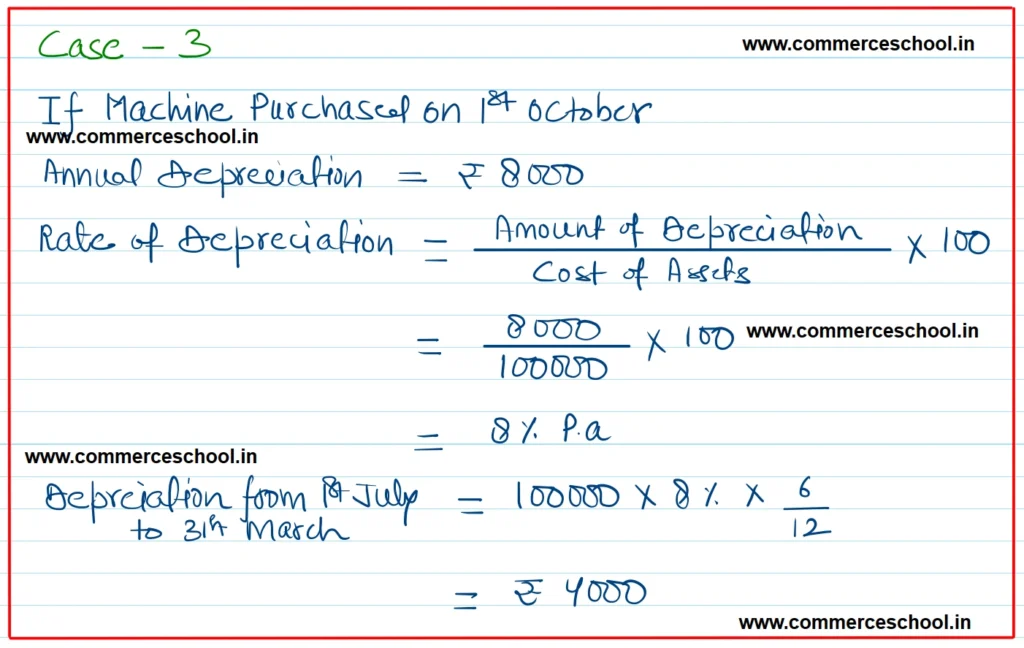 Case - 3
www.commerceschool.in
If Machine Purchased on 1st October
www.commerceschool.in
Annual Depreciation = ₹ 8000
Rate of Depreciation = Amount of Depreciation / Cost of Assets × 100
= 8000 / 100000 × 100
www.commerceschool.in
= 8% P.a
www.commerceschool.in
Depreciation from 1st July = 100000 × 8% × 6/12
to 31th March
= ₹ 4000
www.commerceschool.in